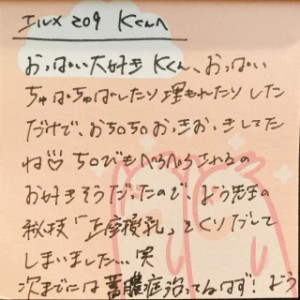 エルメ209 Kくんへ
おっぱい大好きKくん、おっぱい
ちゅぱちゅぱしたり埋もれたりした
だけで、おちちおっきおっきしてた
ね♡ ちちびもぺろぺろされるの
お好きそうだったので、よう先生の
秘技「正座授乳」をくりだして
しまいました…笑
次までには蓄膿症治ってるはず！よう